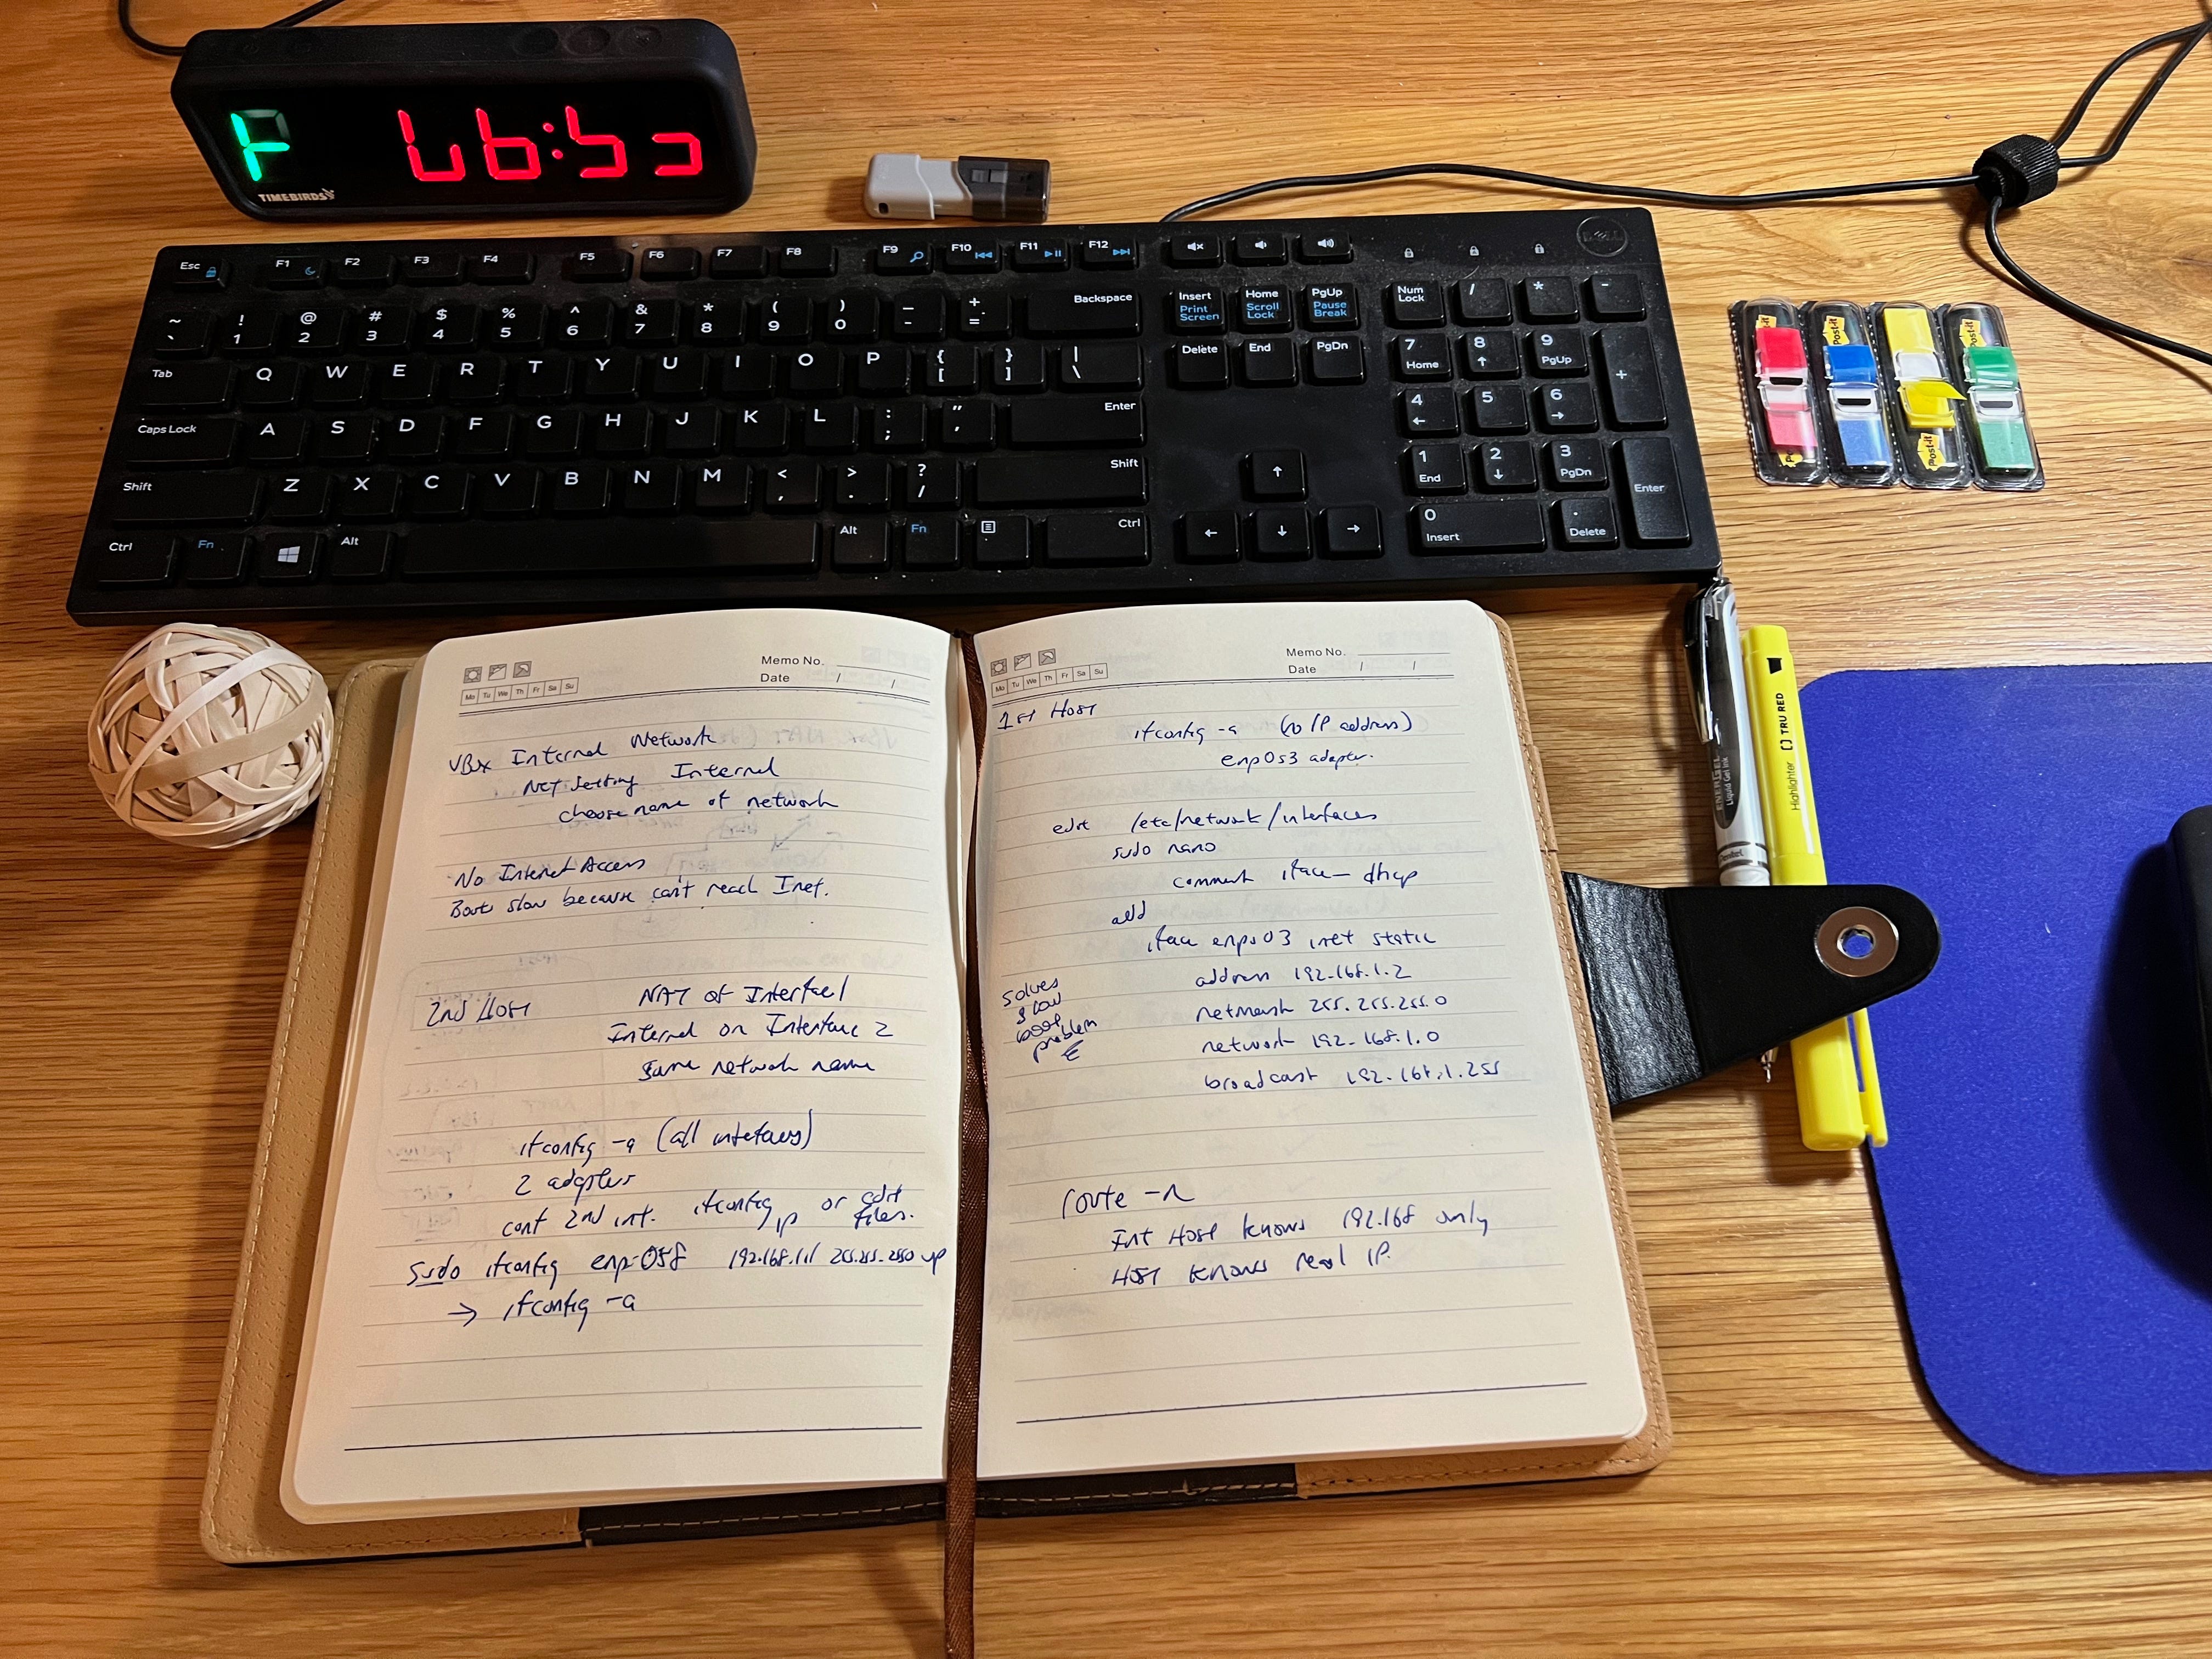 TIMEBIRDS
DELL
Esc F1 F2 F3 F4 F5 F6 F7 F8 F9 F10 F11 F12
~ ` ! 1 @ 2 # 3 $ 4 % 5 ^ 6 & 7 * 8 ( 9 ) 0 _ - + = Backspace
Insert Print Screen Home Scroll Lock PgUp Pause Break Num Lock / * -
Tab Q W E R T Y U I O P { [ } ] | \
Delete End PgDn 7 Home 8 ↑ 9 PgUp +
Caps Lock A S D F G H J K L : ; " ' Enter
4 ← 5 6 →
Shift Z X C V B N M < , > . ? / Shift
↑ 1 End 2 ↓ 3 PgDn Enter
Ctrl Fn Alt Alt Fn Ctrl
← ↓ → 0 Insert . Delete
Post-it Post-it Post-it Post-it
Memo No.
Date / /
Mo Tu We Th Fr Sa Su
VBox Internal Network
Net Setting Internal
choose name of network
No Internet Access
Boots slow because can't reach Inet.
2nd Host NAT of Interface 1
Internal on Interface 2
Same network name
ifconfig -a (all interfaces)
2 adapters
conf 2nd int. ifconfig ip or edit files.
Sudo ifconfig 192.168.1.1 up
→ ifconfig -a
Memo No.
Date / /
Mo Tu We Th Fr Sa Su
1st Host
ifconfig -a (no IP address)
enp0s3 adapter.
edit /etc/network/interfaces
sudo nano
comment iface — dhcp
add
iface enps03 inet static
address 192.168.1.2
netmask 255.255.255.0
network 192.168.1.0
broadcast 192.168.1.255
solves
slow
boot
problem
route -n
Int Host knows 192.168 only
Host knows real IP.
ENERGEL
Liquid Gel Ink
Pentel
Highlighter TRU RED